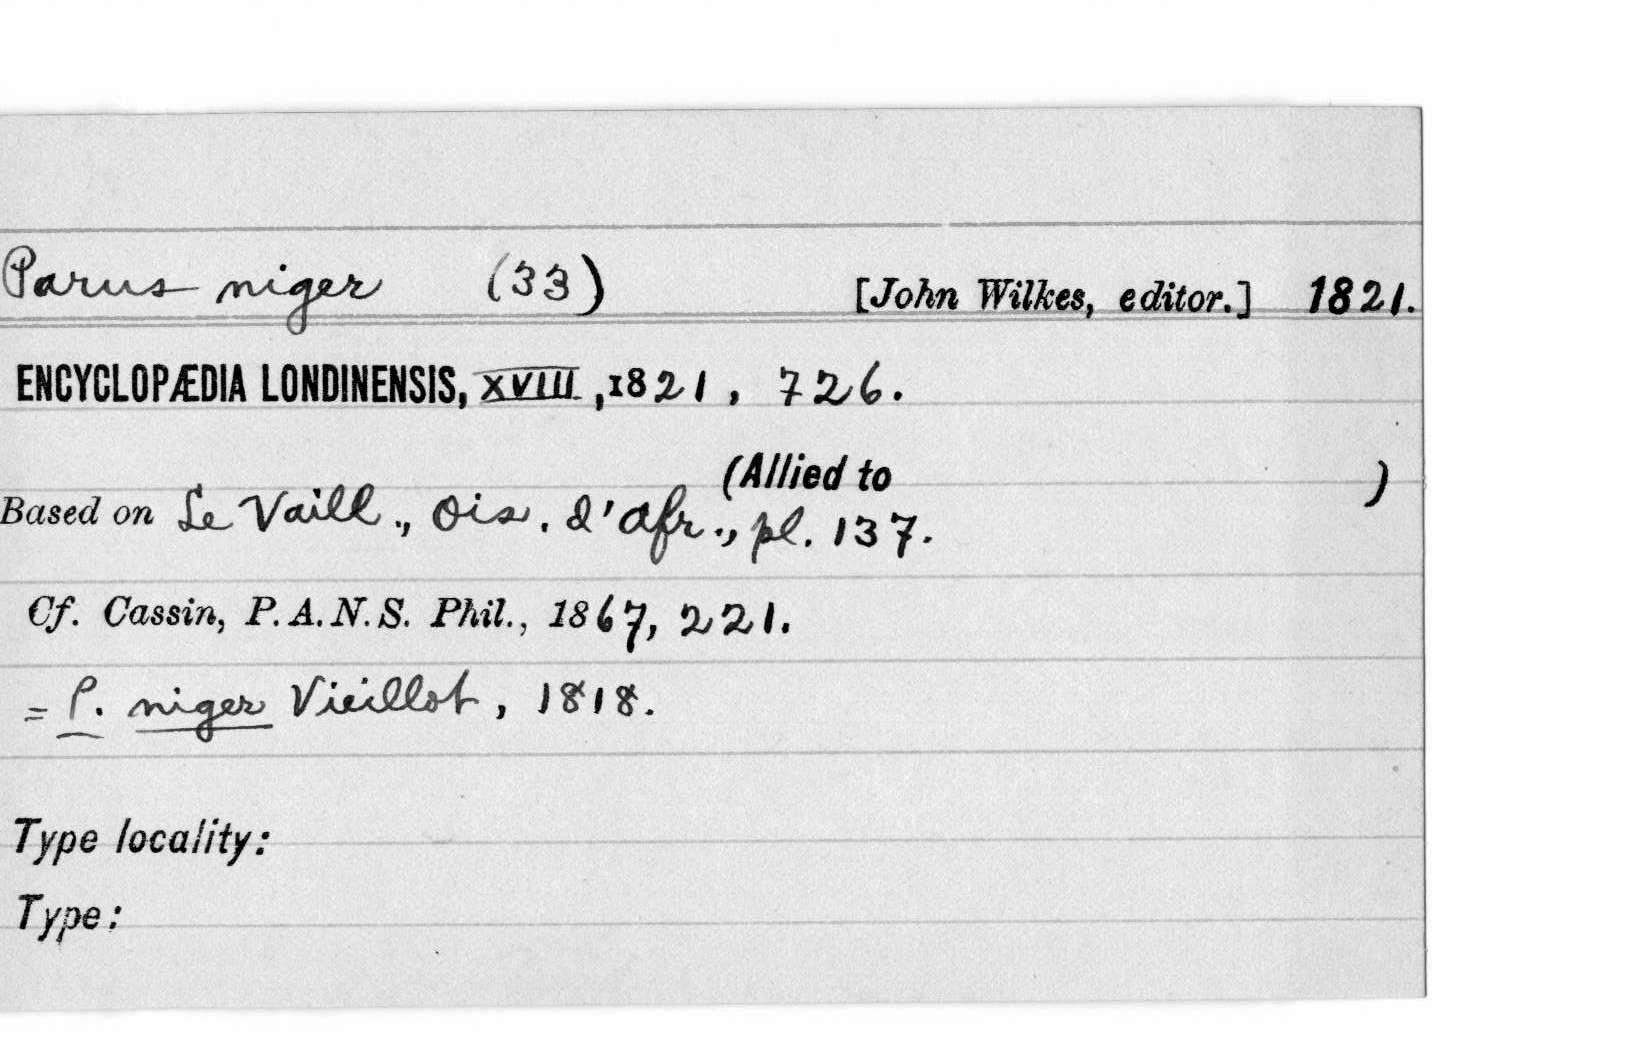 Parus niger (33) [John Wilkes, editor.] 1821.
ENCYCLOPÆDIA LONDINENSIS, XVIII, 1821, 726.
(Allied to )
Based on Le Vaill., Ois. d'Afr., pl. 137.
Cf. Cassin, P. A. N. S. Phil., 1867, 221.
= P. niger Vieillot, 1818.
Type locality:
Type: